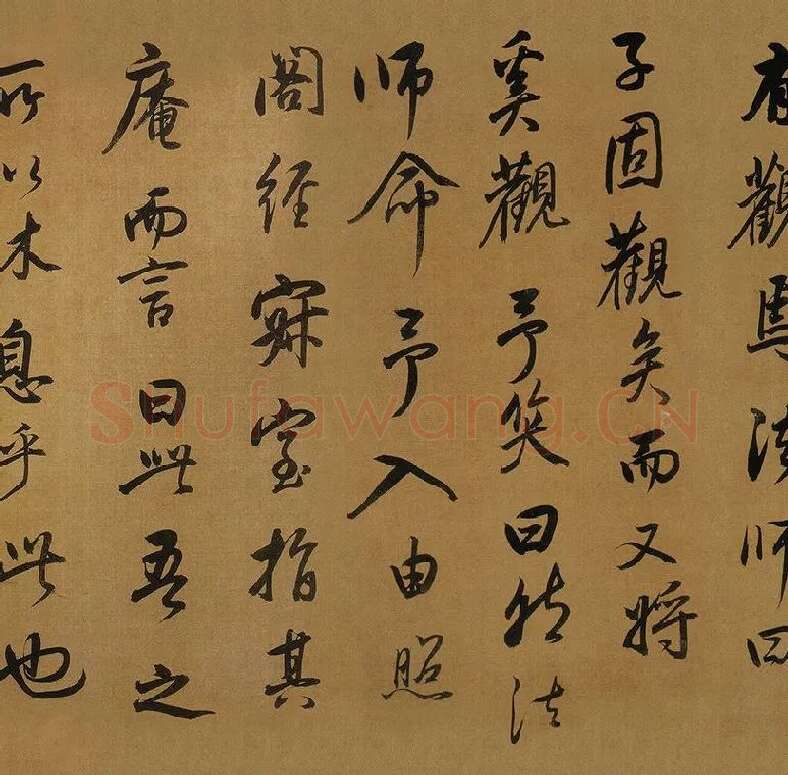 有觀焉法師曰
子固觀矣而又將
奚觀予笑曰然法
師命予入由照
閣經寂室指其
庵而言曰此吾之
所以休息乎此也
Shufawang.CN